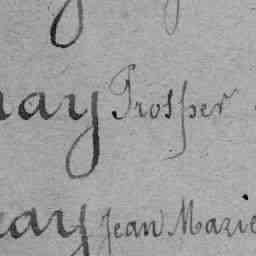 nay Prosper
ray Jean Marie